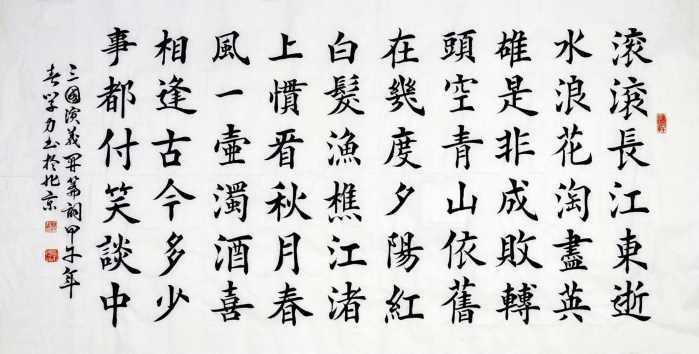 滚滚長江東逝
水浪花淘盡英
雄是非成敗轉
頭空青山依舊
在幾度夕陽紅
白髮漁樵江渚
上慣看秋月春
風一壺濁酒喜
相逢古今多少
事都付笑談中
三國演義開篇詞甲午年
春学力书於北京